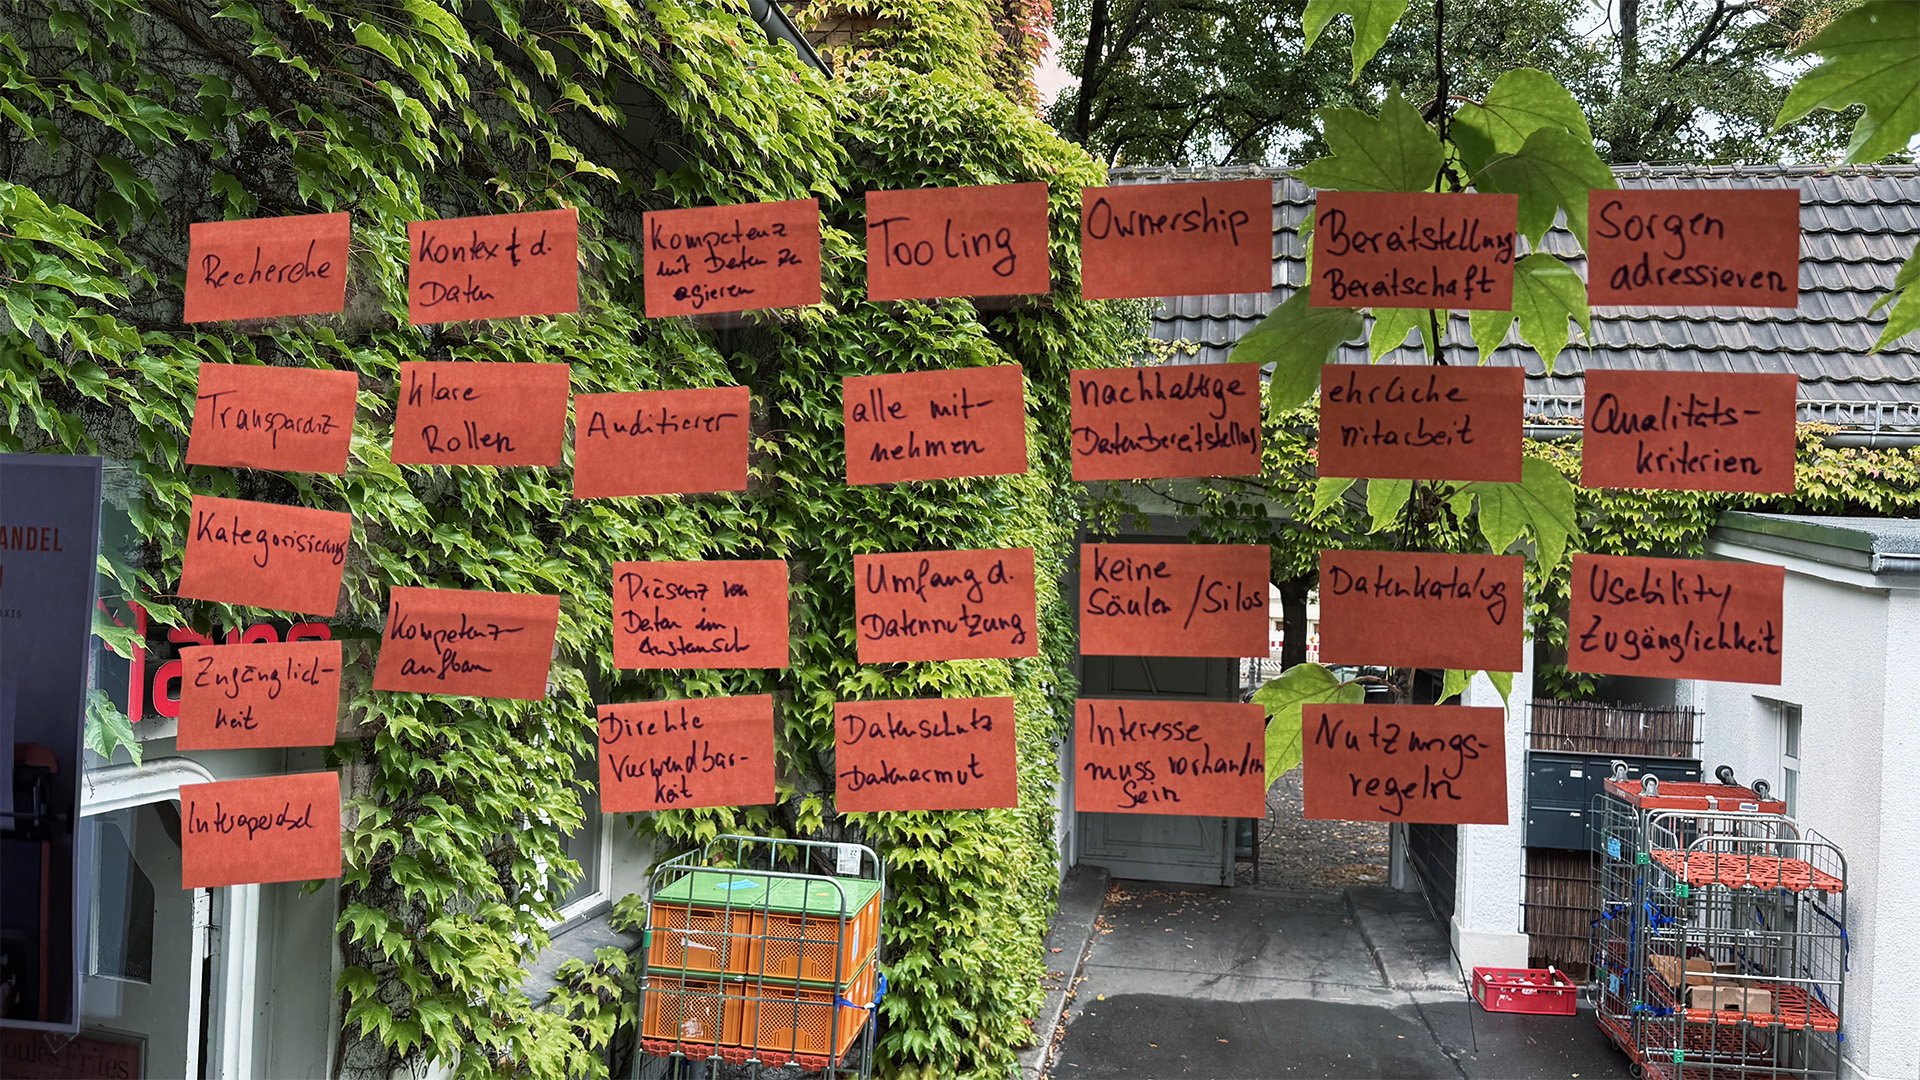 Recherche
Kontext d.
Daten
Kompetenz
mit Daten zu
agieren
Tooling
Ownership
Bereitstellung
Bereitschaft
Sorgen
adressieren
Transparenz
klare
Rollen
Auditierer
alle mit-
nehmen
nachhaltige
Datenbereitstellung
ehrliche
mitarbeit
Qualitäts-
kriterien
Kategorisierung
Kompetenz-
aufbau
Präsenz von
Daten im
Austausch
Umfang d.
Datennutzung
keine
Säulen / Silos
Datenkatalog
Usebility/
Zugänglichkeit
Zugänglich-
keit
Direkte
Verwendbar-
keit
Datenschutz
Datenarmut
Interesse
muss vorhanden
sein
Nutzungs-
regeln
Interoperabel
ANDEL
AXIS